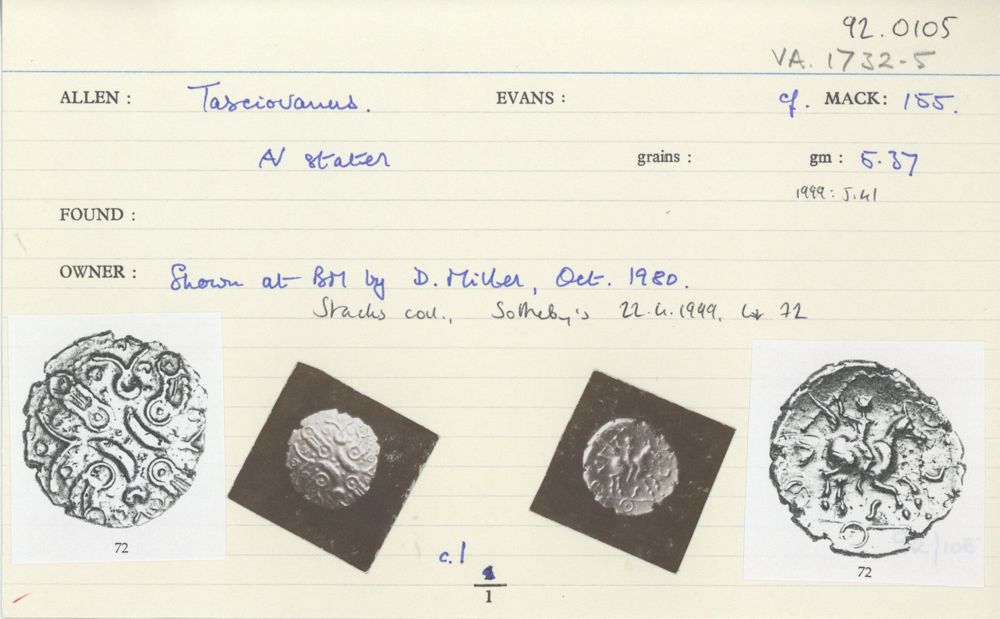 92.0105
VA. 1732-5
ALLEN : Tasciovanus. EVANS : cf. MACK: 155.
AV stater grains : gm : 5.37
1999: 5.41
FOUND :
OWNER : Shown at BM by D. Miller, Oct. 1980.
Stacks coll., Sotheby's 22.4.1999, lot 72
72
72
92/105
c.1
1